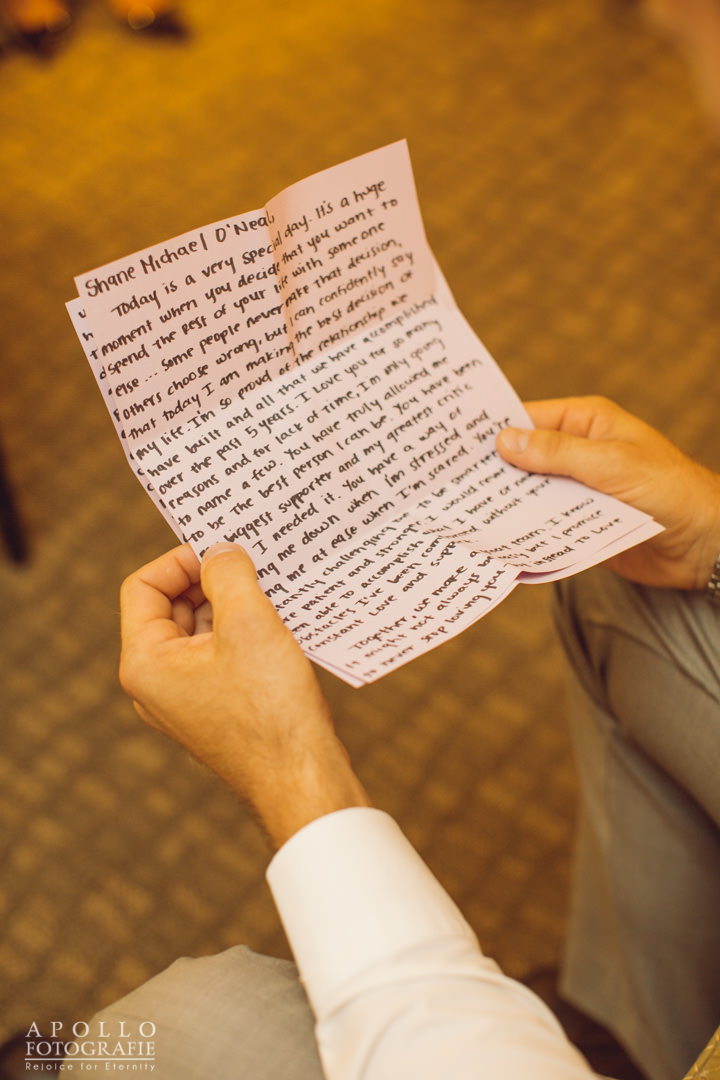 Shane Michael O'Neal,
Today is a very special day. It's a huge
moment when you decide that you want to
spend the rest of your life with someone
else... Some people never make that decision,
others choose wrong, but I can confidently say
that today I am making the best decision of
my life. I'm so proud of the relationship we
have built and all that we have accomplished
over the past 5 years. I love you for so many
reasons and for lack of time, I'm only going
to name a few. You have truly allowed me
to be the best person I can be. You have been
biggest supporter and my greatest critic
I needed it. You have a way of
me down when i'm stressed and
me at ease when I'm scared. You're
challenging to be smarter
patient and stronger. I would
able to accomplish I have or
obstacles I've been without your
constant love and
Together, we make team. I know
it might not always be I promise
to never stop loving you
instead to Love
APOLLO
FOTOGRAFIE
Rejoice for Eternity